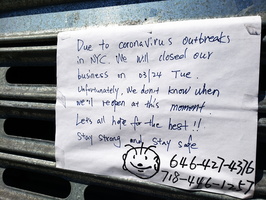 Due to coronavirus outbreaks
in NYC. We will closed our
business in 03/24 Tue.
Unfortunately, We don't know when
we'll reopen at this moment.
Let's all hope for the best!!
Stay strong and stay safe
646-427-4376
718-446-1257